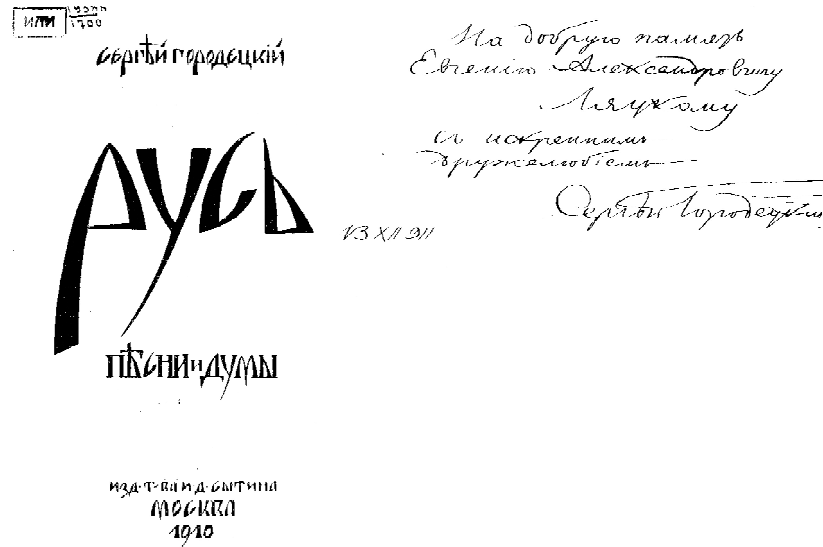 ИЛИ
1700
СЕРГѢЙ ГОРОДЕЦКІЙ
РУСЬ
ПѢСНИ и ДУМЫ
ИЗД. Т-ВА И. Д. СЫТИНА
МОСКВА
1910
На добрую память
Евгенію Александровичу
Ляцкому
съ искреннимъ
дружелюбіемъ
Сергѣй Городецкій
XII 911